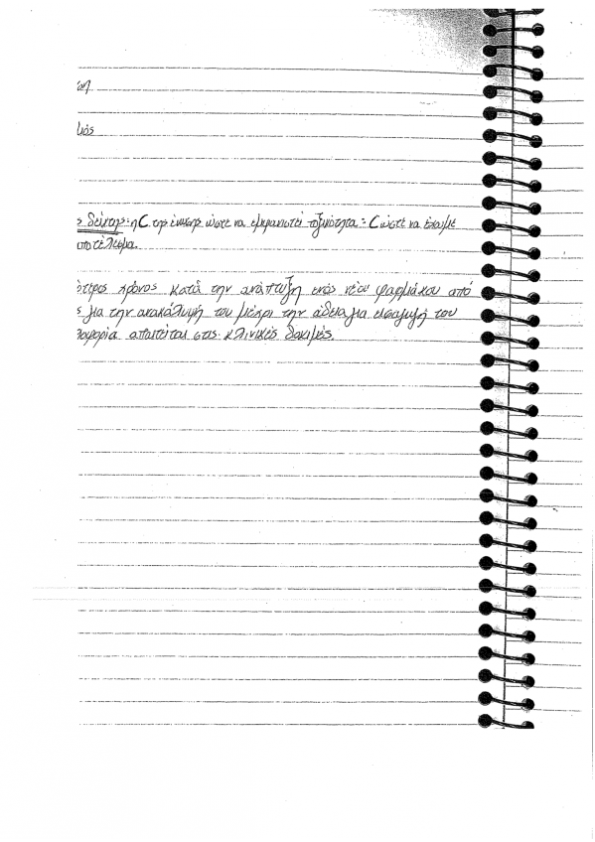 ση
μός
ς δείκτης: η C της ένωσης ώστε να εμφανιστεί τοξικότητα ÷ C ώστε να έχουμε
αποτέλεσμα.
ότερος χρόνος κατά την ανάπτυξη ενός νέου φαρμάκου από
ς για την ανακάλυψή του μέχρι την άδεια για εισαγωγή του
λοφορία απαιτείται στις κλινικές δοκιμές.